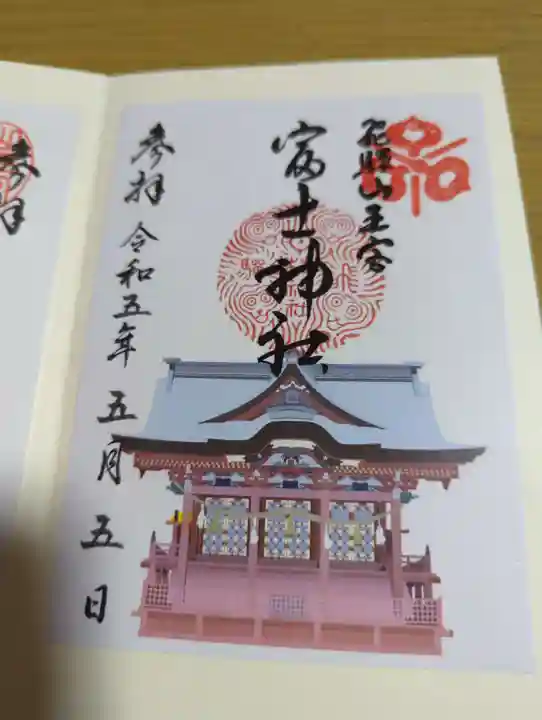 花照山王宮
富士神社
参拝
令和五年
五月
五日
参拝